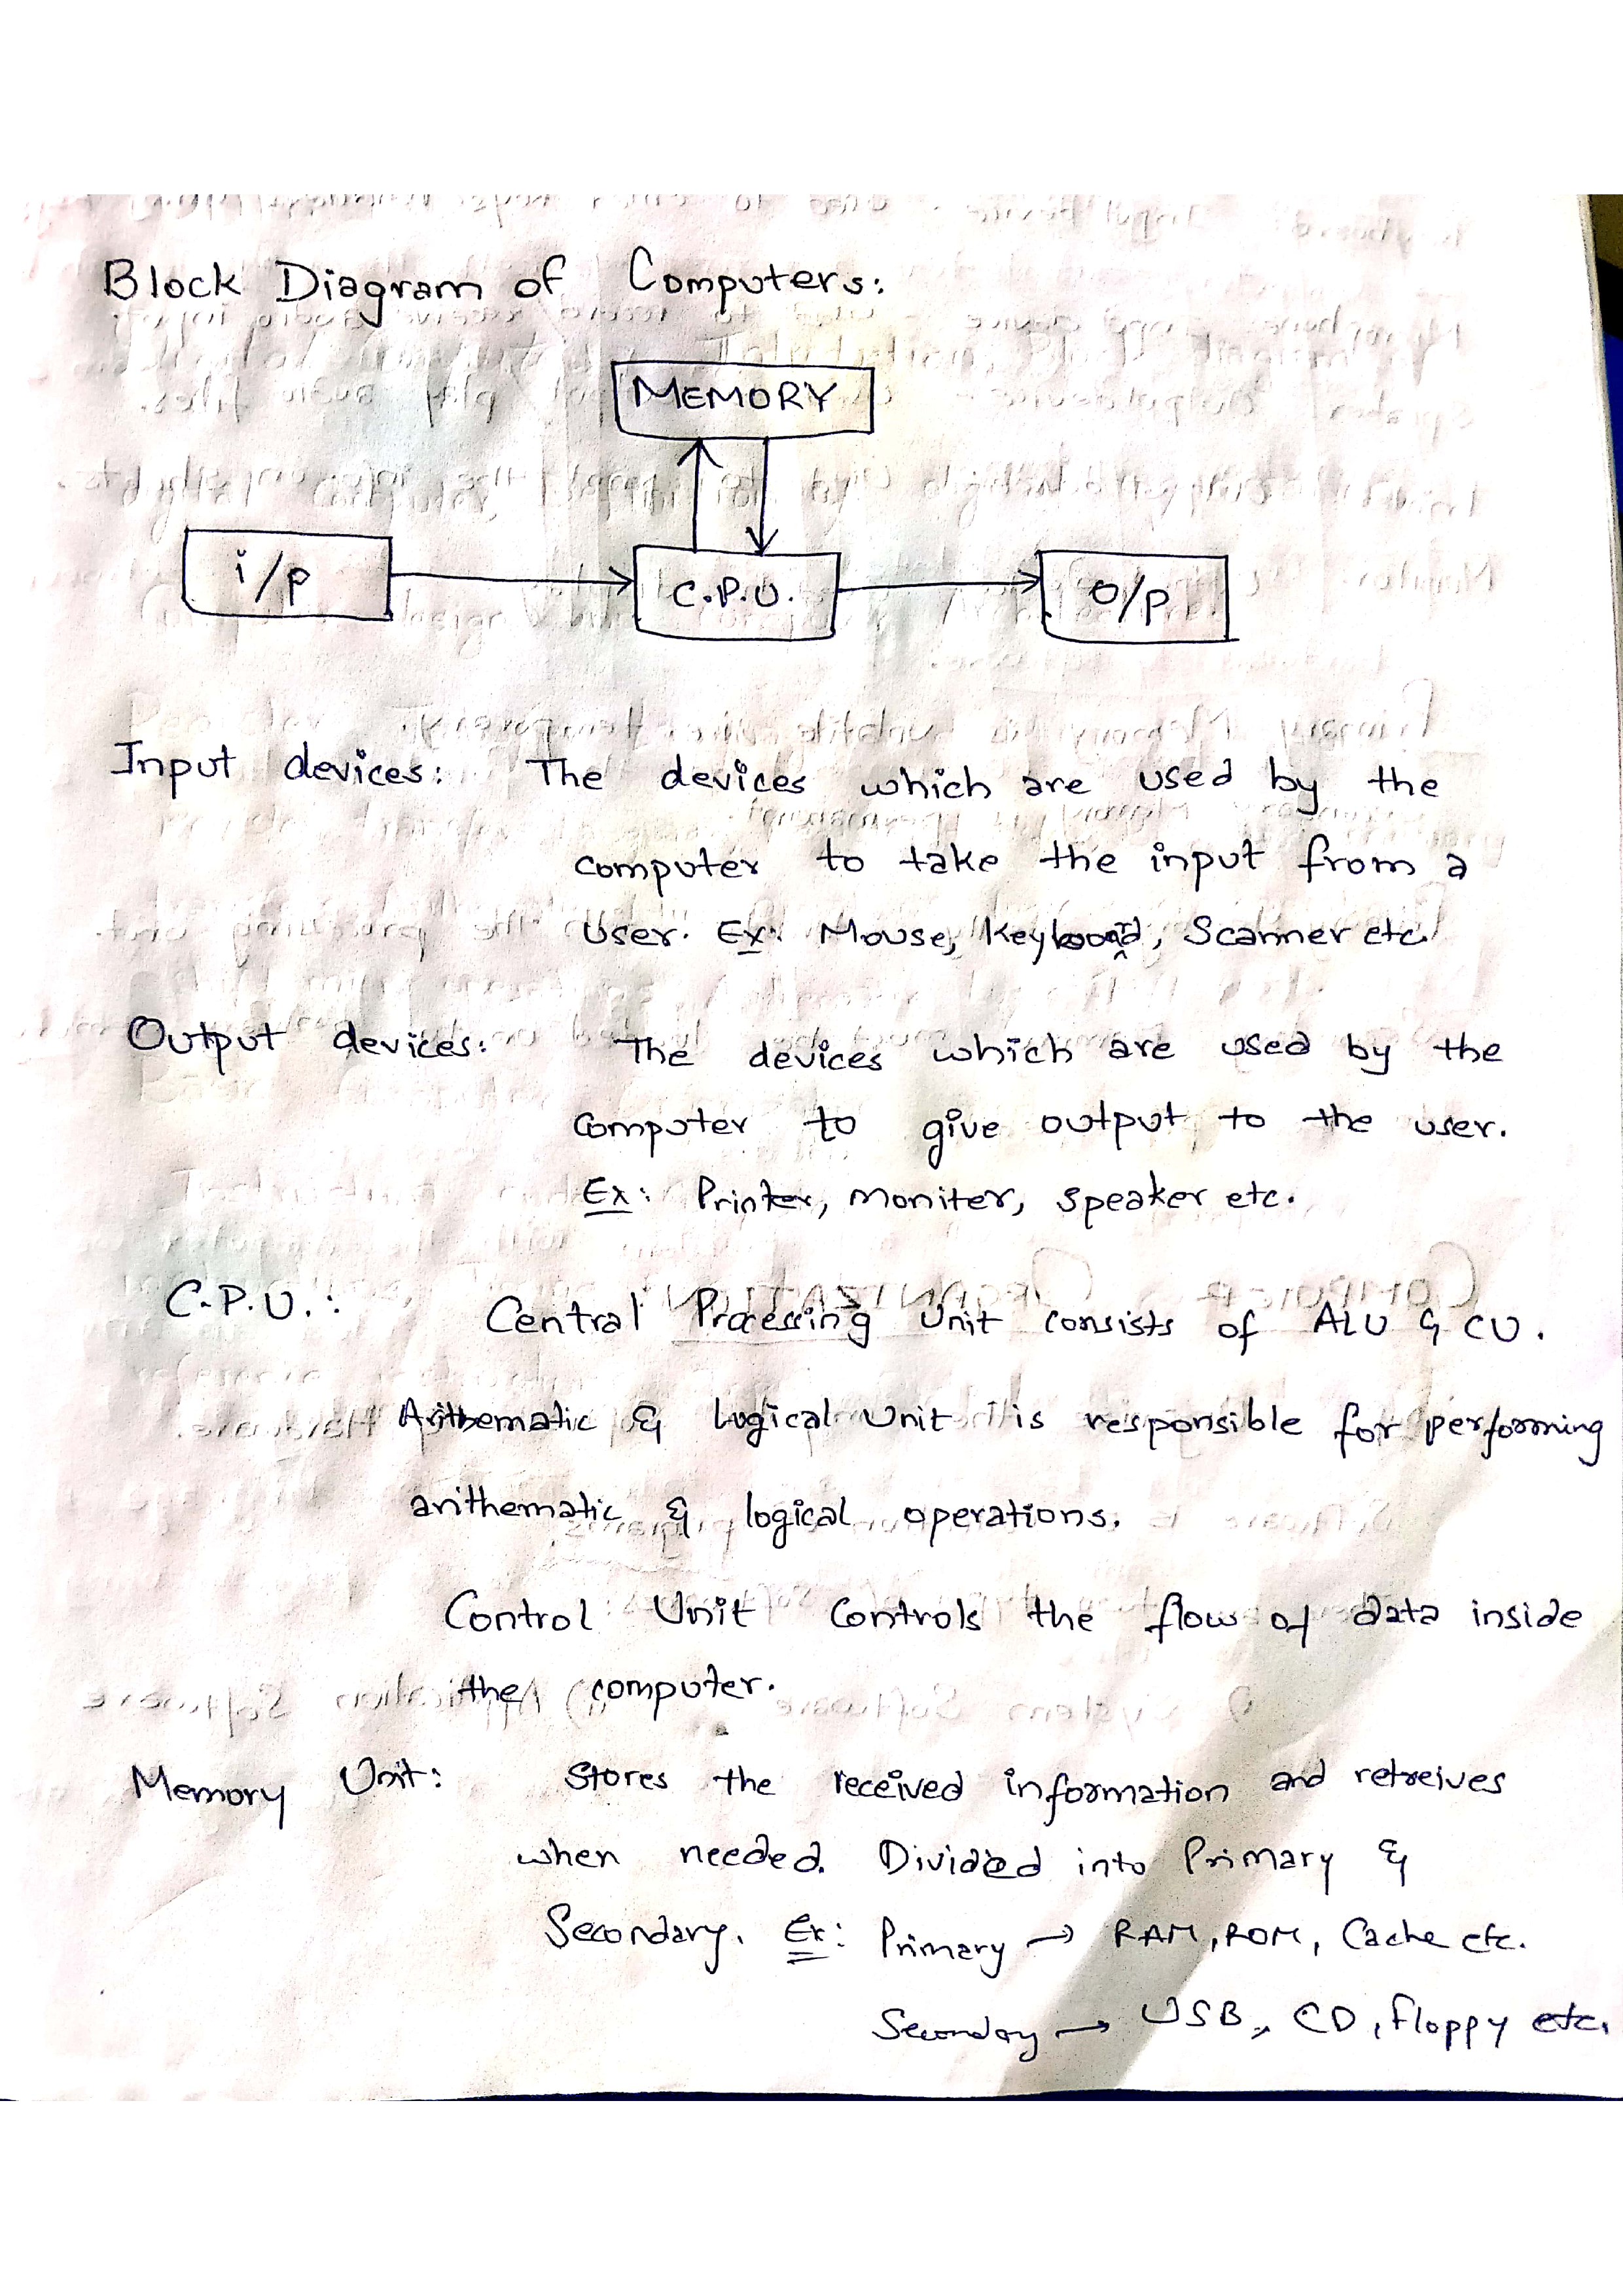 Block Diagram of Computers:
MEMORY
i/p
C.P.U.
O/p
Input devices: The devices which are used by the
computer to take the input from a
user. Ex: Mouse, Keyboard, Scanner etc.
Output devices: The devices which are used by the
computer to give output to the user.
Ex: Printer, moniter, speaker etc.
C.P.U.: Central Processing Unit consists of ALU & CU.
Arithematic & Logical Unit is responsible for performing
arithematic & logical operations.
Control Unit Controls the flow of data inside
the computer.
Memory Unit: Stores the received information and retreives
when needed. Divided into Primary &
Secondary. Ex: Primary → RAM, ROM, Cache etc.
Secondary → USB, CD, floppy etc.